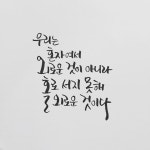 우리는
혼자여서
외로운 것이 아니라
홀로 서지 못해
늘 외로운 것이다